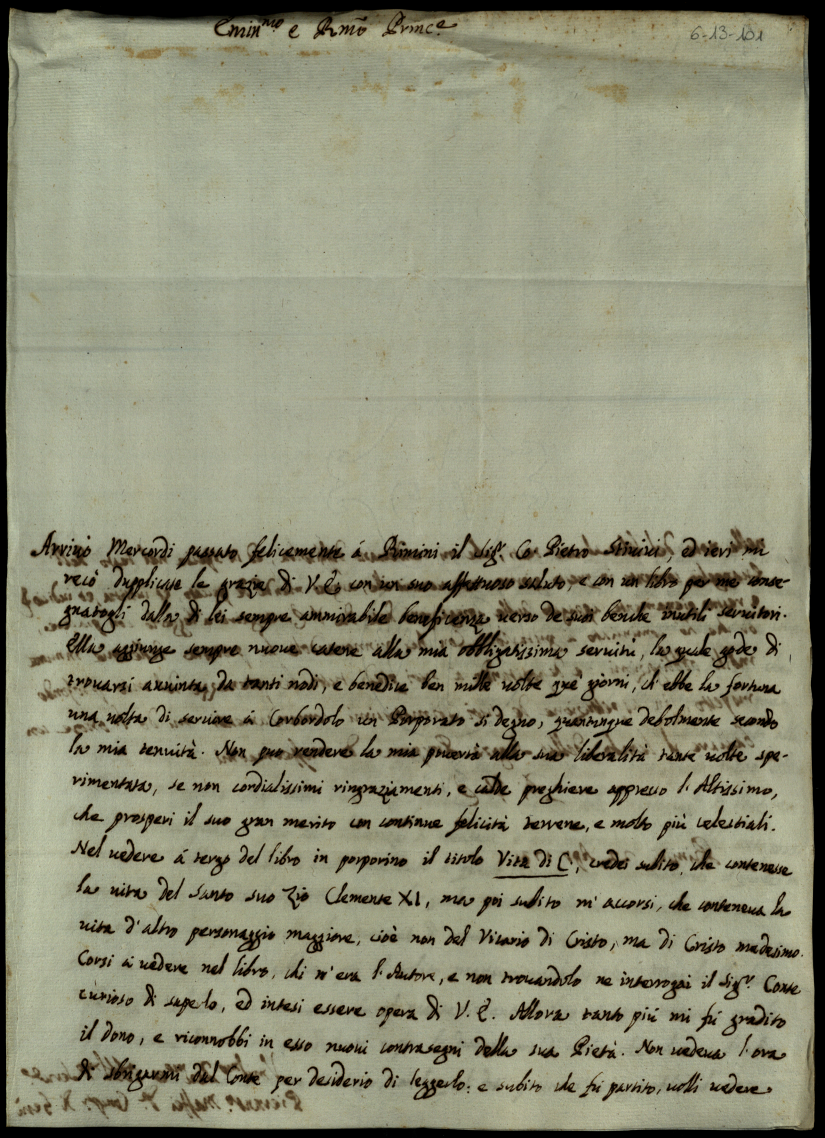 Emin.mo e Rmo Prince
6-13-101
Arrivò Mercordì passato felicemente á Rimini il Sig.r Co: Pietro ed ieri mi
recò dupplicate le grazie di V. E. con un suo affettuoso saluto, e con un libro per me conse-
gnatogli dalla di lei sempre ammirabile beneficenza verso de suoi benche inutili servitori.
Ella aggiunge sempre nuove catene alla mia obbligatissima servitù, la quale gode di
trovarsi avvinta da tanti nodi, e benedice ben mille volte que' giorni, ch'ebbe la fortuna
una volta di servire á Corbordolo un Porporato sì degno, quantunque debolmente secondo
la mia tenuità. Non può rendere la mia povertà alla sua liberalità tante volte spe-
rimentata, se non cordialissimi ringraziamenti, e calde preghiere appresso l'Altissimo,
che prosperi il suo gran merito con continue felicità terrene, e molto più celestiali.
Nel vedere á tergo del libro in porporino il titolo Vita di C, credei subito, che contenesse
la vita del Santo suo Zio Clemente XI, ma poi subito m'accorsi, che conteneva la
vita d'altro personaggio maggiore, cioè non del Vicario di Cristo, ma di Cristo medesimo.
Corsi á vedere nel libro, chi n'era l'Autore, e non trovandolo ne interrogai il Sig.r Conte
curioso di saperlo, ed intesi essere opera di V. E. Allora tanto più mi fú gradito
il dono, e riconnobbi in esso nuovi contrasegni della sua Pietà. Non vedeva l'ora
di sbrigarmi dal Conte per desiderio di leggerlo: e subito che fú partito, volli vedere